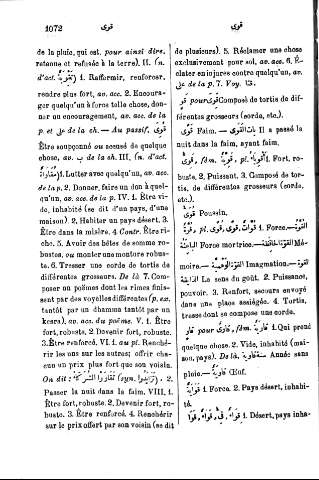 1072
قوى
قوى
de la pluie, qui est pour ainsi dire,
retenue et refusée à la terre). II. (n.
d'act. تَقْوِيَةٌ) 1. Raffermir, renforcer,
rendre plus fort, av. acc. 2. Encoura-
ger quelqu'un à force telle chose, don-
ner un encouragement, av. acc. de la
p. et على de la ch. — Au passif, قُوِّىَ
Être soupçonné ou accusé de quelque
chose, av. ب de la ch. III. (n. d'act.
مُقَاوَاةٌ) 1. Lutter avec quelqu'un, av. acc.
de la p. 2. Donner, faire un don à quel-
qu'un, av. acc. de la p. IV. 1. Être vi-
de, inhabité (se dit d'un pays, d'une
maison). 2. Habiter un pays désert. 3.
Être dans la misère. 4. Contr. Être ri-
che. 5. Avoir des bêtes de somme ro-
bustes, ou monter une monture robus-
te. 6. Tresser une corde de tortis de
différentes grosseurs. De là 7. Com-
poser un poëme dont les rimes finis-
sent par des voyelles différentes (p. ex.
tantôt par un dhamma tantôt par un
kesra), av. acc. du poëme. V. 1. Être
fort, robuste. 2. Devenir fort, robuste.
3. Être renforcé. VI. 1. au pl. Renché-
rir les uns sur les autres; offrir cha-
cun un prix plus fort que son voisin.
On dit: تَقَاوَوْا الشَّرِكَةَ (syn. تَزَايَدُوا). 2.
Passer la nuit dans la faim. VIII. 1.
Être fort, robuste. 2. Devenir fort, ro-
buste. 3. Être renforcé. 4. Renchérir
sur le prix offert par son voisin (se dit
de plusieurs). 5. Réclamer une chose
exclusivement pour soi, av. acc. 6. É-
clater en injures contre quelqu'un, av.
على de la p. 7. Voy. قاء.
قَوٍ pour قَوِىٌ Composé de tortis de dif-
férentes grosseurs (corde, etc.).
قَوًى Faim. — بَاتَ القَوَى Il a passé la
nuit dans la faim, ayant faim.
قَوِىٌّ, fém. قَوِيَّةٌ, pl. أَقْوِيَاءُ 1. Fort, ro-
buste. 2. Puissant. 3. Composé de tor-
tis, de différentes grosseurs (corde,
etc.).
قُوَىٌّ Poussin.
قُوَّةٌ, pl. قُوَّاتٌ, قُوًى, قِوًى 1. Force. — القُوَّةُ
البَاعِثَةُ Force motrice. — القُوَّةُ الحَافِظَةُ Mé-
moire. — القُوَّةُ الوَهْمِيَّةُ Imagination. — القُوَّةُ
الذَّائِقَةُ Le sens du goût. 2. Puissance,
pouvoir. 3. Renfort, secours envoyé
dans une place assiégée. 4. Tortis,
tresse dont se compose une corde.
قَاوٍ pour قَاوِىٌ, fém. قَاوِيَةٌ 1. Qui prend
quelque chose. 2. Vide, inhabité (mai-
son, pays). De là, سَنَةٌ قَاوِيَةٌ Année sans
pluie. — قَاوِيَةٌ Œuf.
قَوَايَةٌ 1. Force. 2. Pays désert, inhabi-
té.
قَوَاءٌ, قِىٌّ, قِوَاءٌ, قَوًا 1. Désert, pays inha-